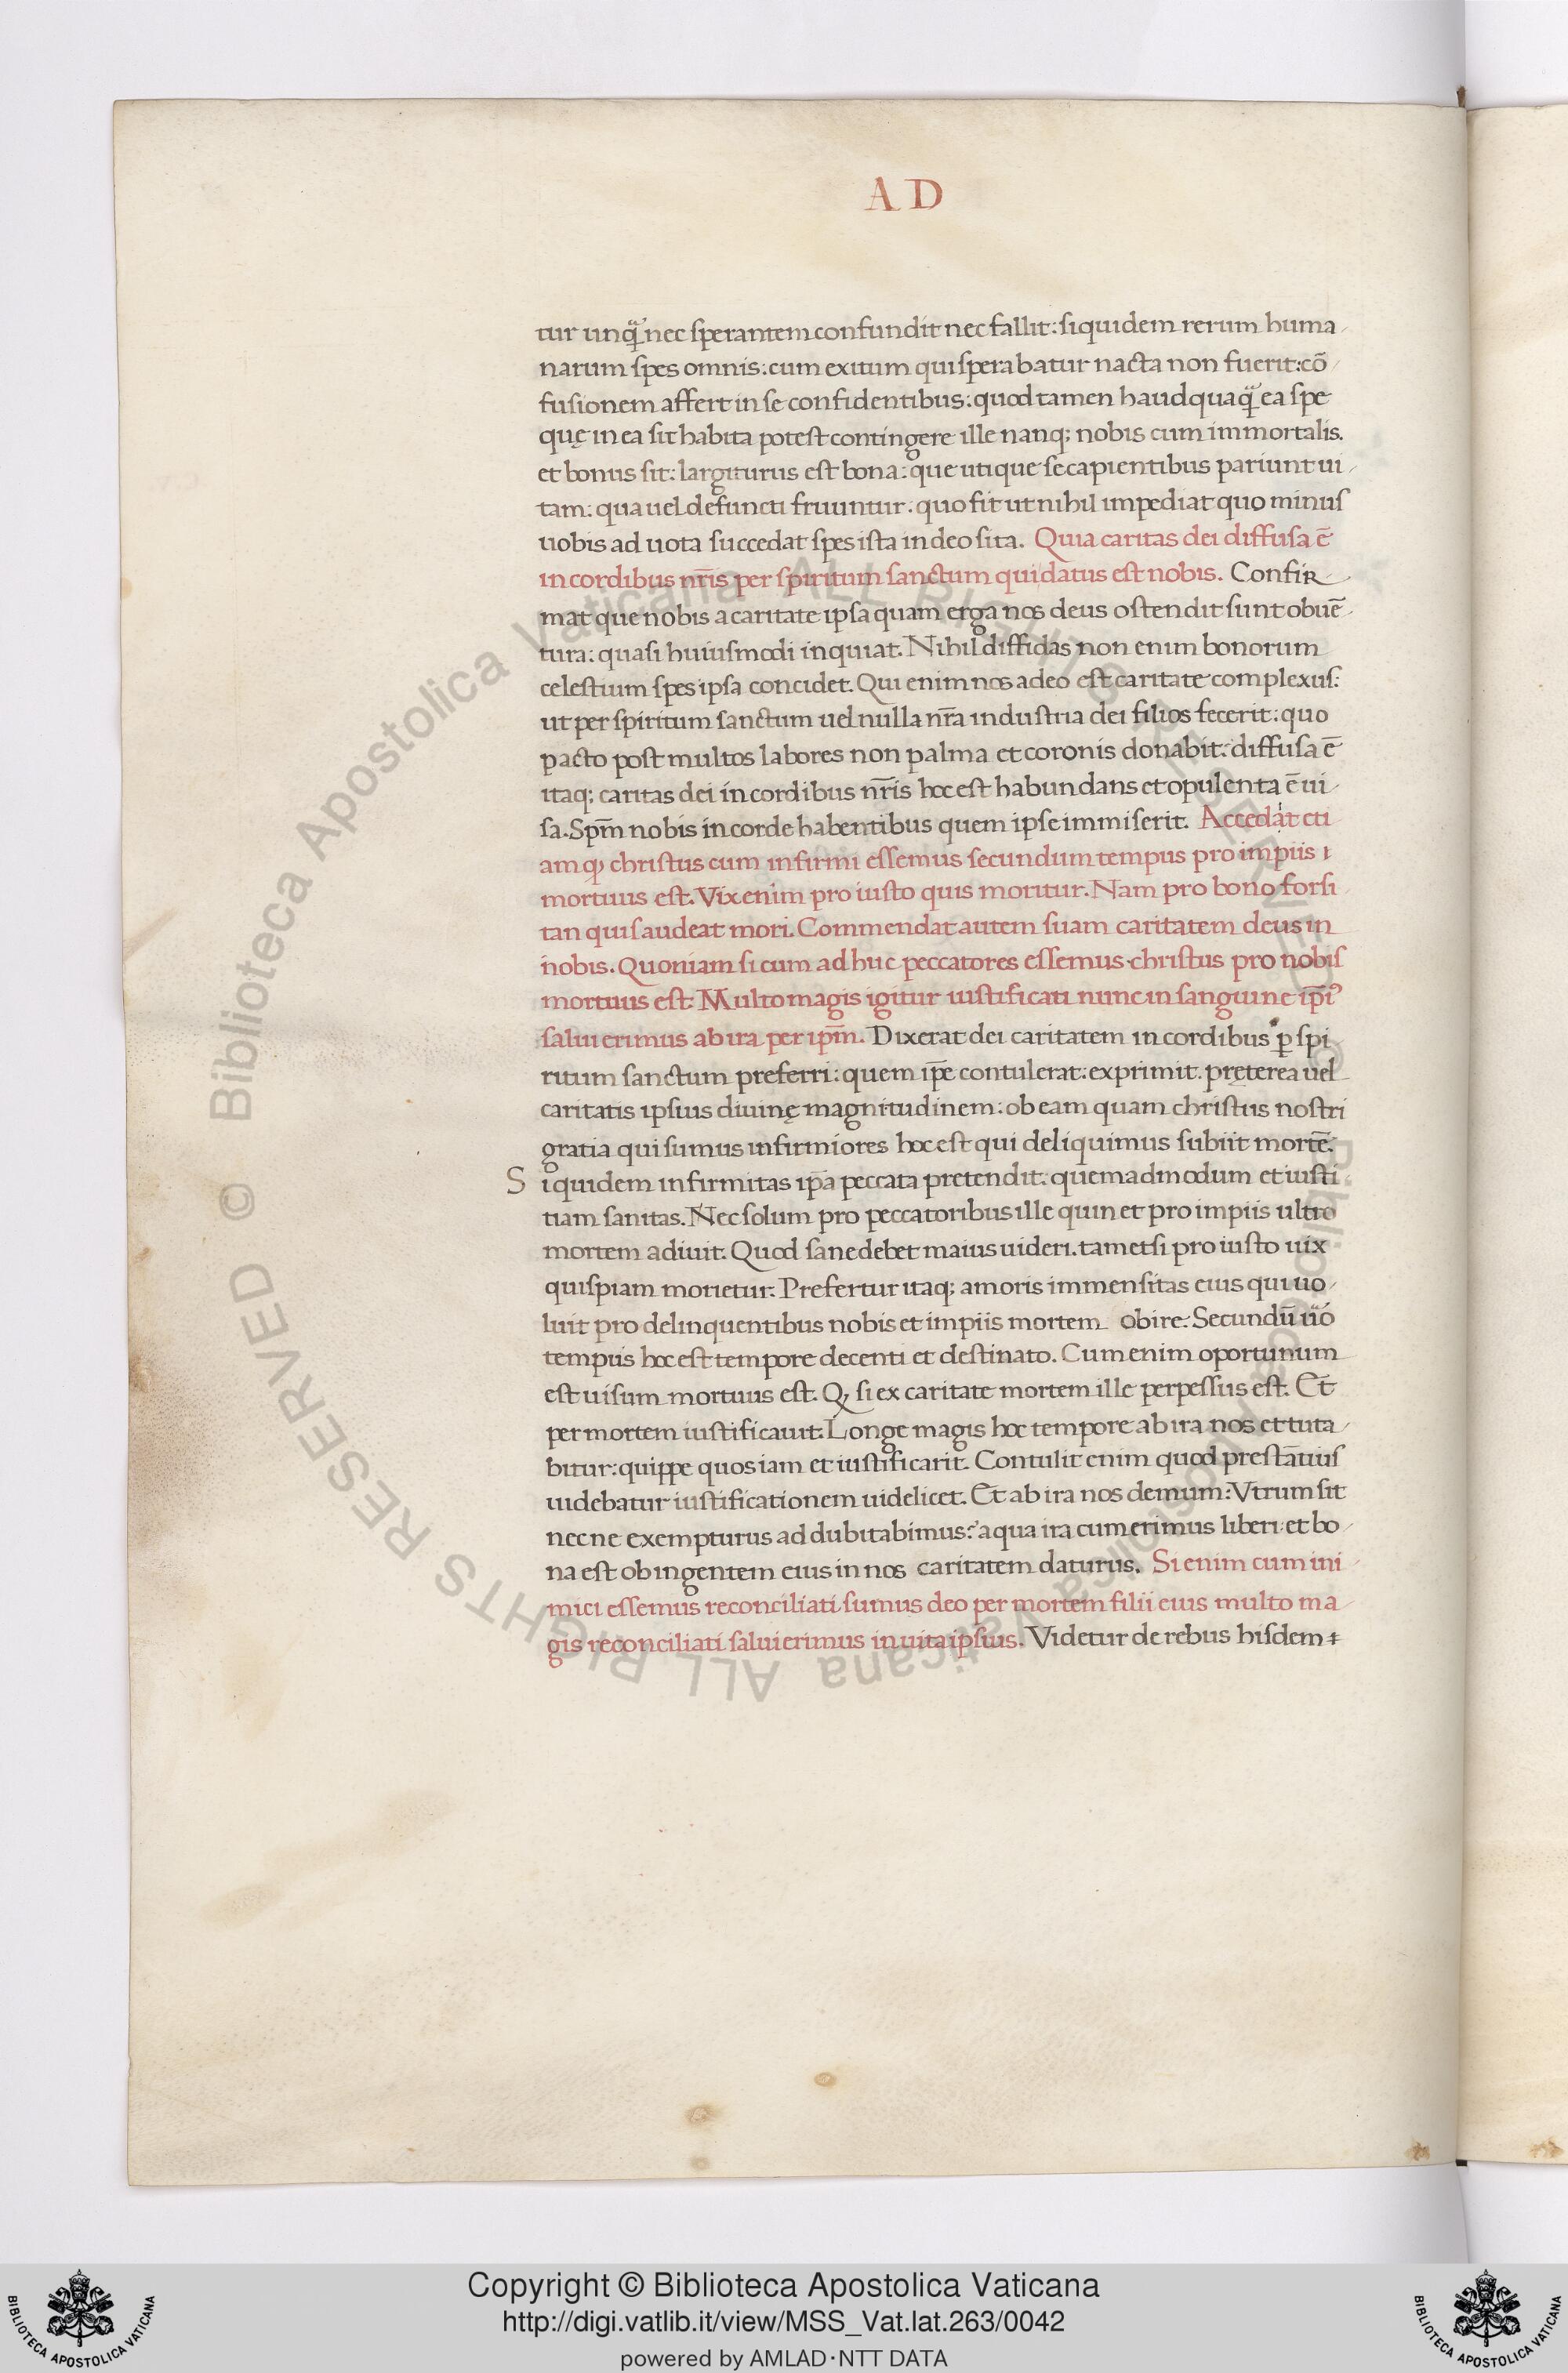 AD
tur unq̃ nec sperantem confundit nec fallit: siquidem rerum huma
narum spes omnis: cum exitum qui sperabatur nacta non fuerit: cō
fusionem affert in se confidentibus: quod tamen haudquaq̃ ea spe
quę in ea sit habita potest contingere ille nanq; nobis cum immortalis.
et bonus sit: largiturus est bona: que utique se capientibus pariunt ui
tam: qua uel defuncti fruuntur: quo fit ut nihil impediat quo minus
uobis ad uota succedat spes ista in deo sita. Quia caritas dei diffusa ē
in cordibus nr̄is per spiritum sanctum qui datus est nobis. Confir
mat que nobis a caritate ipsa quam erga nos deus ostendit sunt obuē
tura: quasi huiusmodi inquiat. Nihil diffidas non enim bonorum
celestium spes ipsa concidet. Qui enim nos adeo est caritate complexus:
ut per spiritum sanctum uel nulla nr̄a industria dei filios fecerit: quo
pacto post multos labores non palma et coronis donabit: diffusa ē
itaq; caritas dei in cordibus nr̄is hoc est habundans et opulenta ē ui
sa. Spm̄ nobis in corde habentibus quem ipse immiserit. Accedat eti
am q christus cum infirmi essemus secundum tempus pro impiis
mortuus est. Vix enim pro iusto quis moritur. Nam pro bono forsi
tan quis audeat mori. Commendat autem suam caritatem deus in
nobis. Quoniam si cum adhuc peccatores essemus christus pro nobis
mortuus est. Multo magis igitur iustificati nunc in sanguine ip̄iꝰ
salui erimus ab ira per ipm̄. Dixerat dei caritatem in cordibus ꝑ spi
ritum sanctum preferri: quem ip̄e contulerat: exprimit. pręterea uel
caritatis ipsius diuinę magnitudinem: ob eam quam christus nostri
gratia qui sumus infirmiores hoc est qui deliquimus subiit mortē.
Siquidem infirmitas ip̄a peccata pretendit: quemadmodum et iusti
tiam sanitas. Nec solum pro peccatoribus ille quin et pro impiis ultro
mortem adiuit. Quod sane debet maius uideri. tametsi pro iusto uix
quispiam morietur. Prefertur itaq; amoris immensitas eius qui uo
luit pro delinquentibus nobis et impiis mortem obire. Secundū uͦo
tempus hoc est tempore decenti et destinato. Cum enim oportunum
est uisum mortuus est. Q si ex caritate mortem ille perpessus est. Et
per mortem iustificauit. Longe magis hoc tempore ab ira nos et tuta
bitur: quippe quos iam et iustificarit. Contulit enim quod prestātius
uidebatur iustificationem uidelicet. Et ab ira nos demum: Vtrum sit
necne exempturus addubitabimus? a qua ira cum erimus liberi: et bo
na est ob ingentem eius in nos caritatem daturus. Si enim cum ini
mici essemus reconciliati sumus deo per mortem filii eius multo ma
gis reconciliati salui erimus in uita ipsius. Videtur de rebus hisdem
© Biblioteca Apostolica Vaticana ALL RIGHTS RESERVED
© Biblioteca Apostolica Vaticana ALL RIGHTS RESERVED
Copyright © Biblioteca Apostolica Vaticana
http://digi.vatlib.it/view/MSS_Vat.lat.263/0042
powered by AMLAD·NTT DATA
BIBLIOTECA APOSTOLICA VATICANA
BIBLIOTECA APOSTOLICA VATICANA